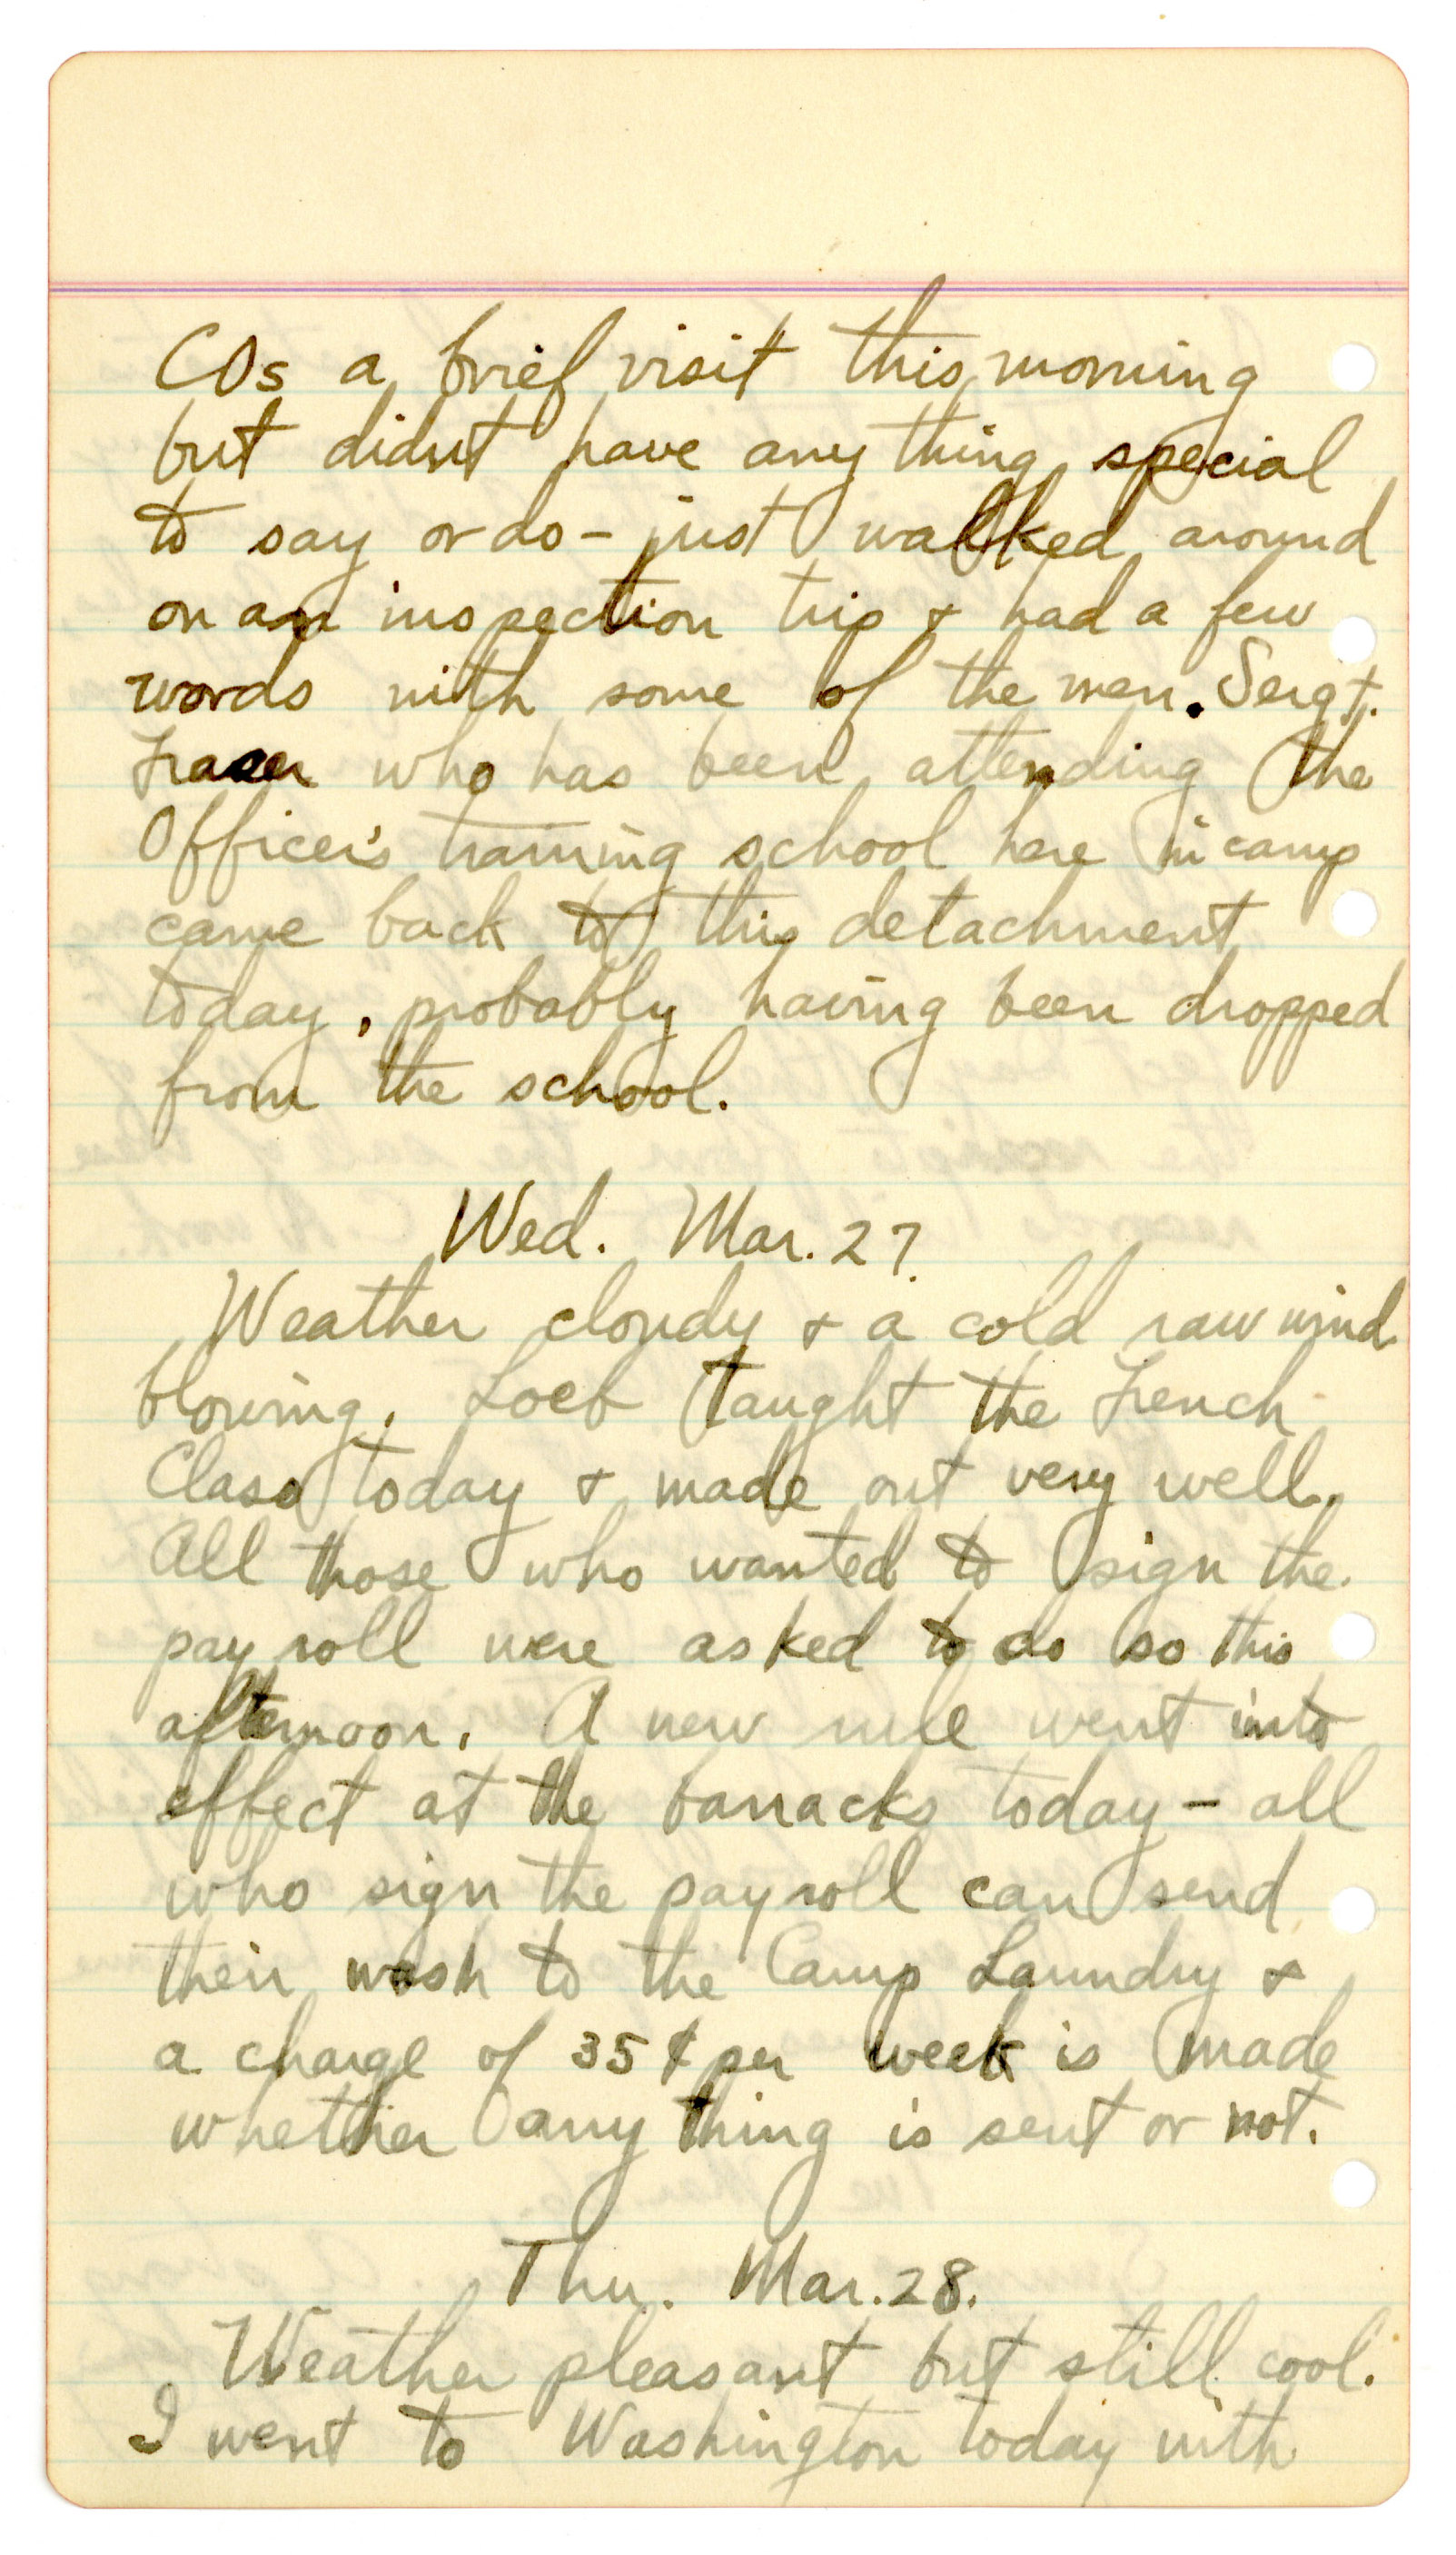 COs a brief visit this morning
but didnt have any thing special
to say or do - just walked around
on an inspection trip + had a few
words with some of the men. Sergt.
who has been attending the
Officer's training school here in camp
came back to this detachment
today, probably having been dropped
from the school.
Wed. Mar. 27.
Weather cloudy + a cold raw wind
blowing. Loeb taught the French
Class today + made out very well.
All those who wanted to sign the
pay roll were asked to do so this
afternoon. A new rule went into
effect at the barracks today - all
who sign the payroll can send
their wash to the Camp Laundry +
a charge of 35¢ per week is made
whether any thing is sent or not.
Thu. Mar. 28.
Weather pleasant but still cool.
I went to Washington today with